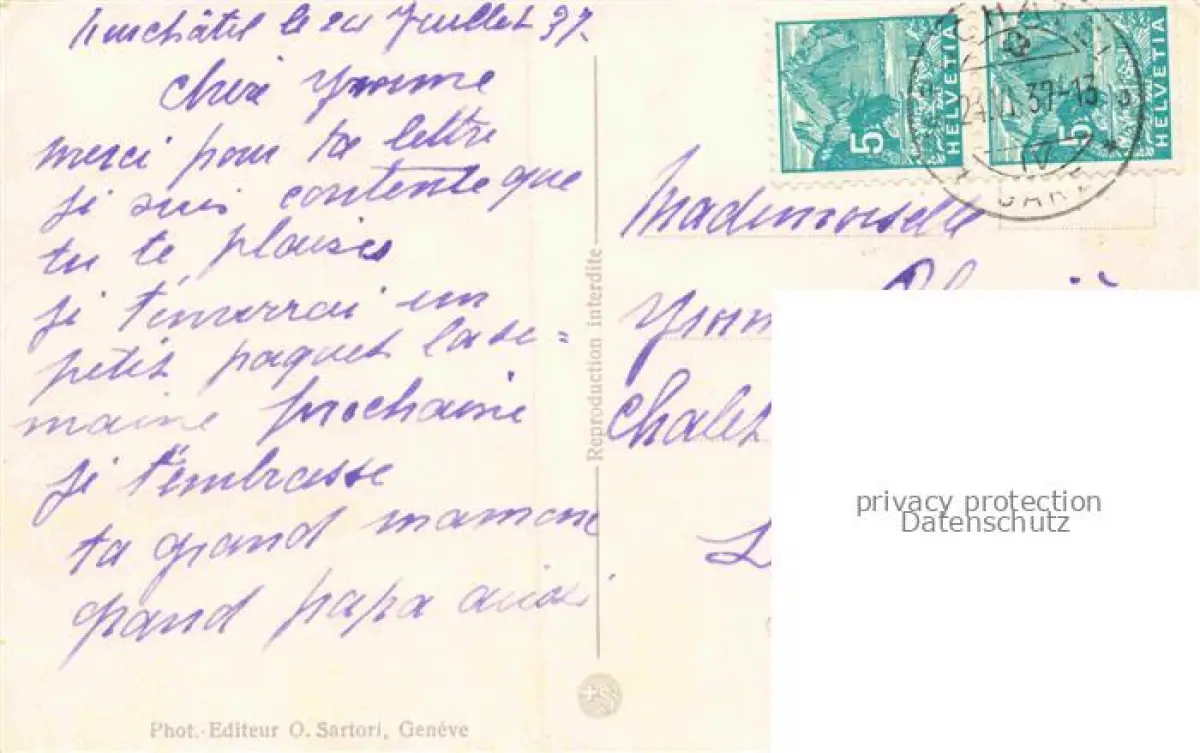 Neuchâtel le 24 Juillet 37.
Chère Yvonne
merci pour ta lettre
je suis contente que
tu te plaises
je t'enverrai un
petit paquet la se=
maine prochaine
je t'embrasse
ta grand maman
grand papa aussi
Phot.-Editeur O. Sartori, Genève
Reproduction interdite
5 HELVETIA
5 HELVETIA
GARE
Mademoiselle
Chalet
privacy protection
Datenschutz